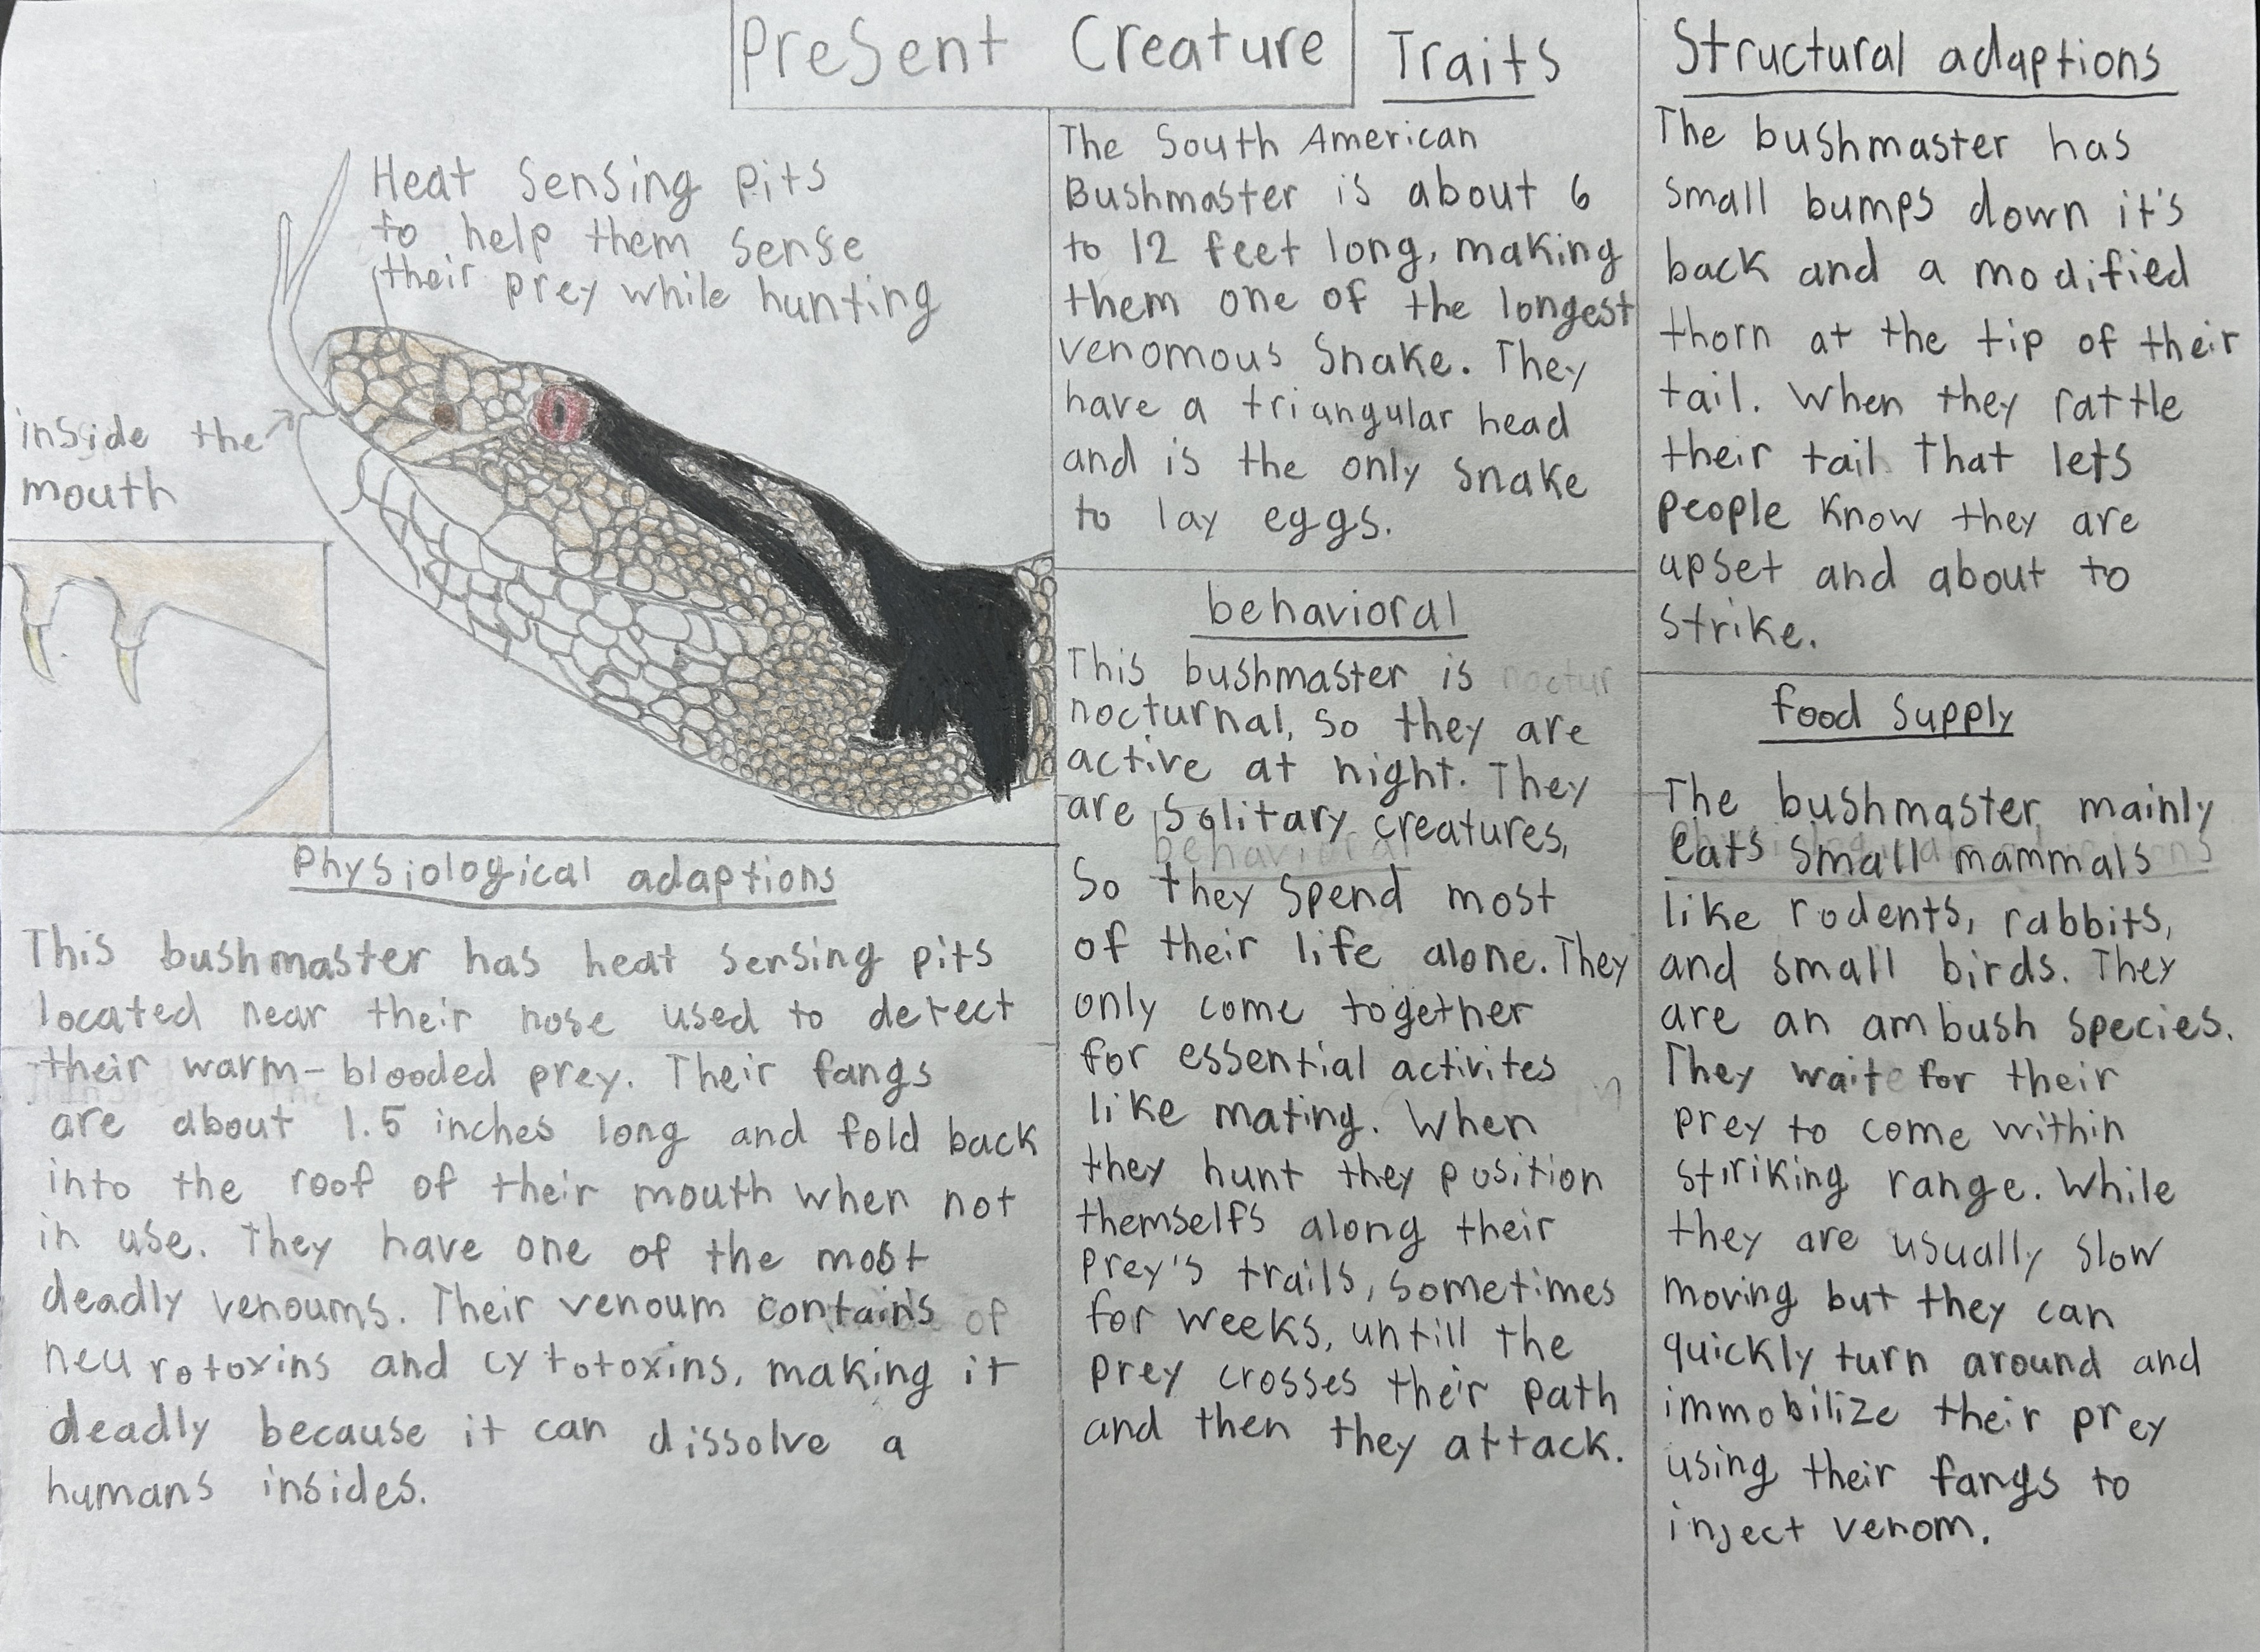 Present Creature
Heat sensing pits
to help them sense
their prey while hunting
inside the
mouth
Physiological adaptions
This bushmaster has heat sensing pits
located near their nose used to detect
their warm-blooded prey. Their fangs
are about 1.5 inches long and fold back
into the roof of their mouth when not
in use. They have one of the most
deadly venoums. Their venoum contains of
neurotoxins and cytotoxins, making it
deadly because it can dissolve a
humans insides.
Traits
The South American
Bushmaster is about 6
to 12 feet long, making
them one of the longest
venomous snake. They
have a triangular head
and is the only snake
to lay eggs.
behavioral
This bushmaster is noctur
nocturnal, so they are
active at night. They
are solitary creatures,
behavioral
So they spend most
of their life alone. They
only come together
for essential activites
like mating. When
they hunt they position
themselfs along their
prey's trails, sometimes
for weeks, untill the
prey crosses their path
and then they attack.
Structural adaptions
The bushmaster has
small bumps down it's
back and a modified
thorn at the tip of their
tail. When they rattle
their tail That lets
people know they are
upset and about to
strike.
food supply
The bushmaster mainly
eats small mammals
like rodents, rabbits,
and small birds. They
are an ambush species.
They wait for their
prey to come within
striking range. While
they are usually slow
moving but they can
quickly turn around and
immobilize their prey
using their fangs to
inject venom.